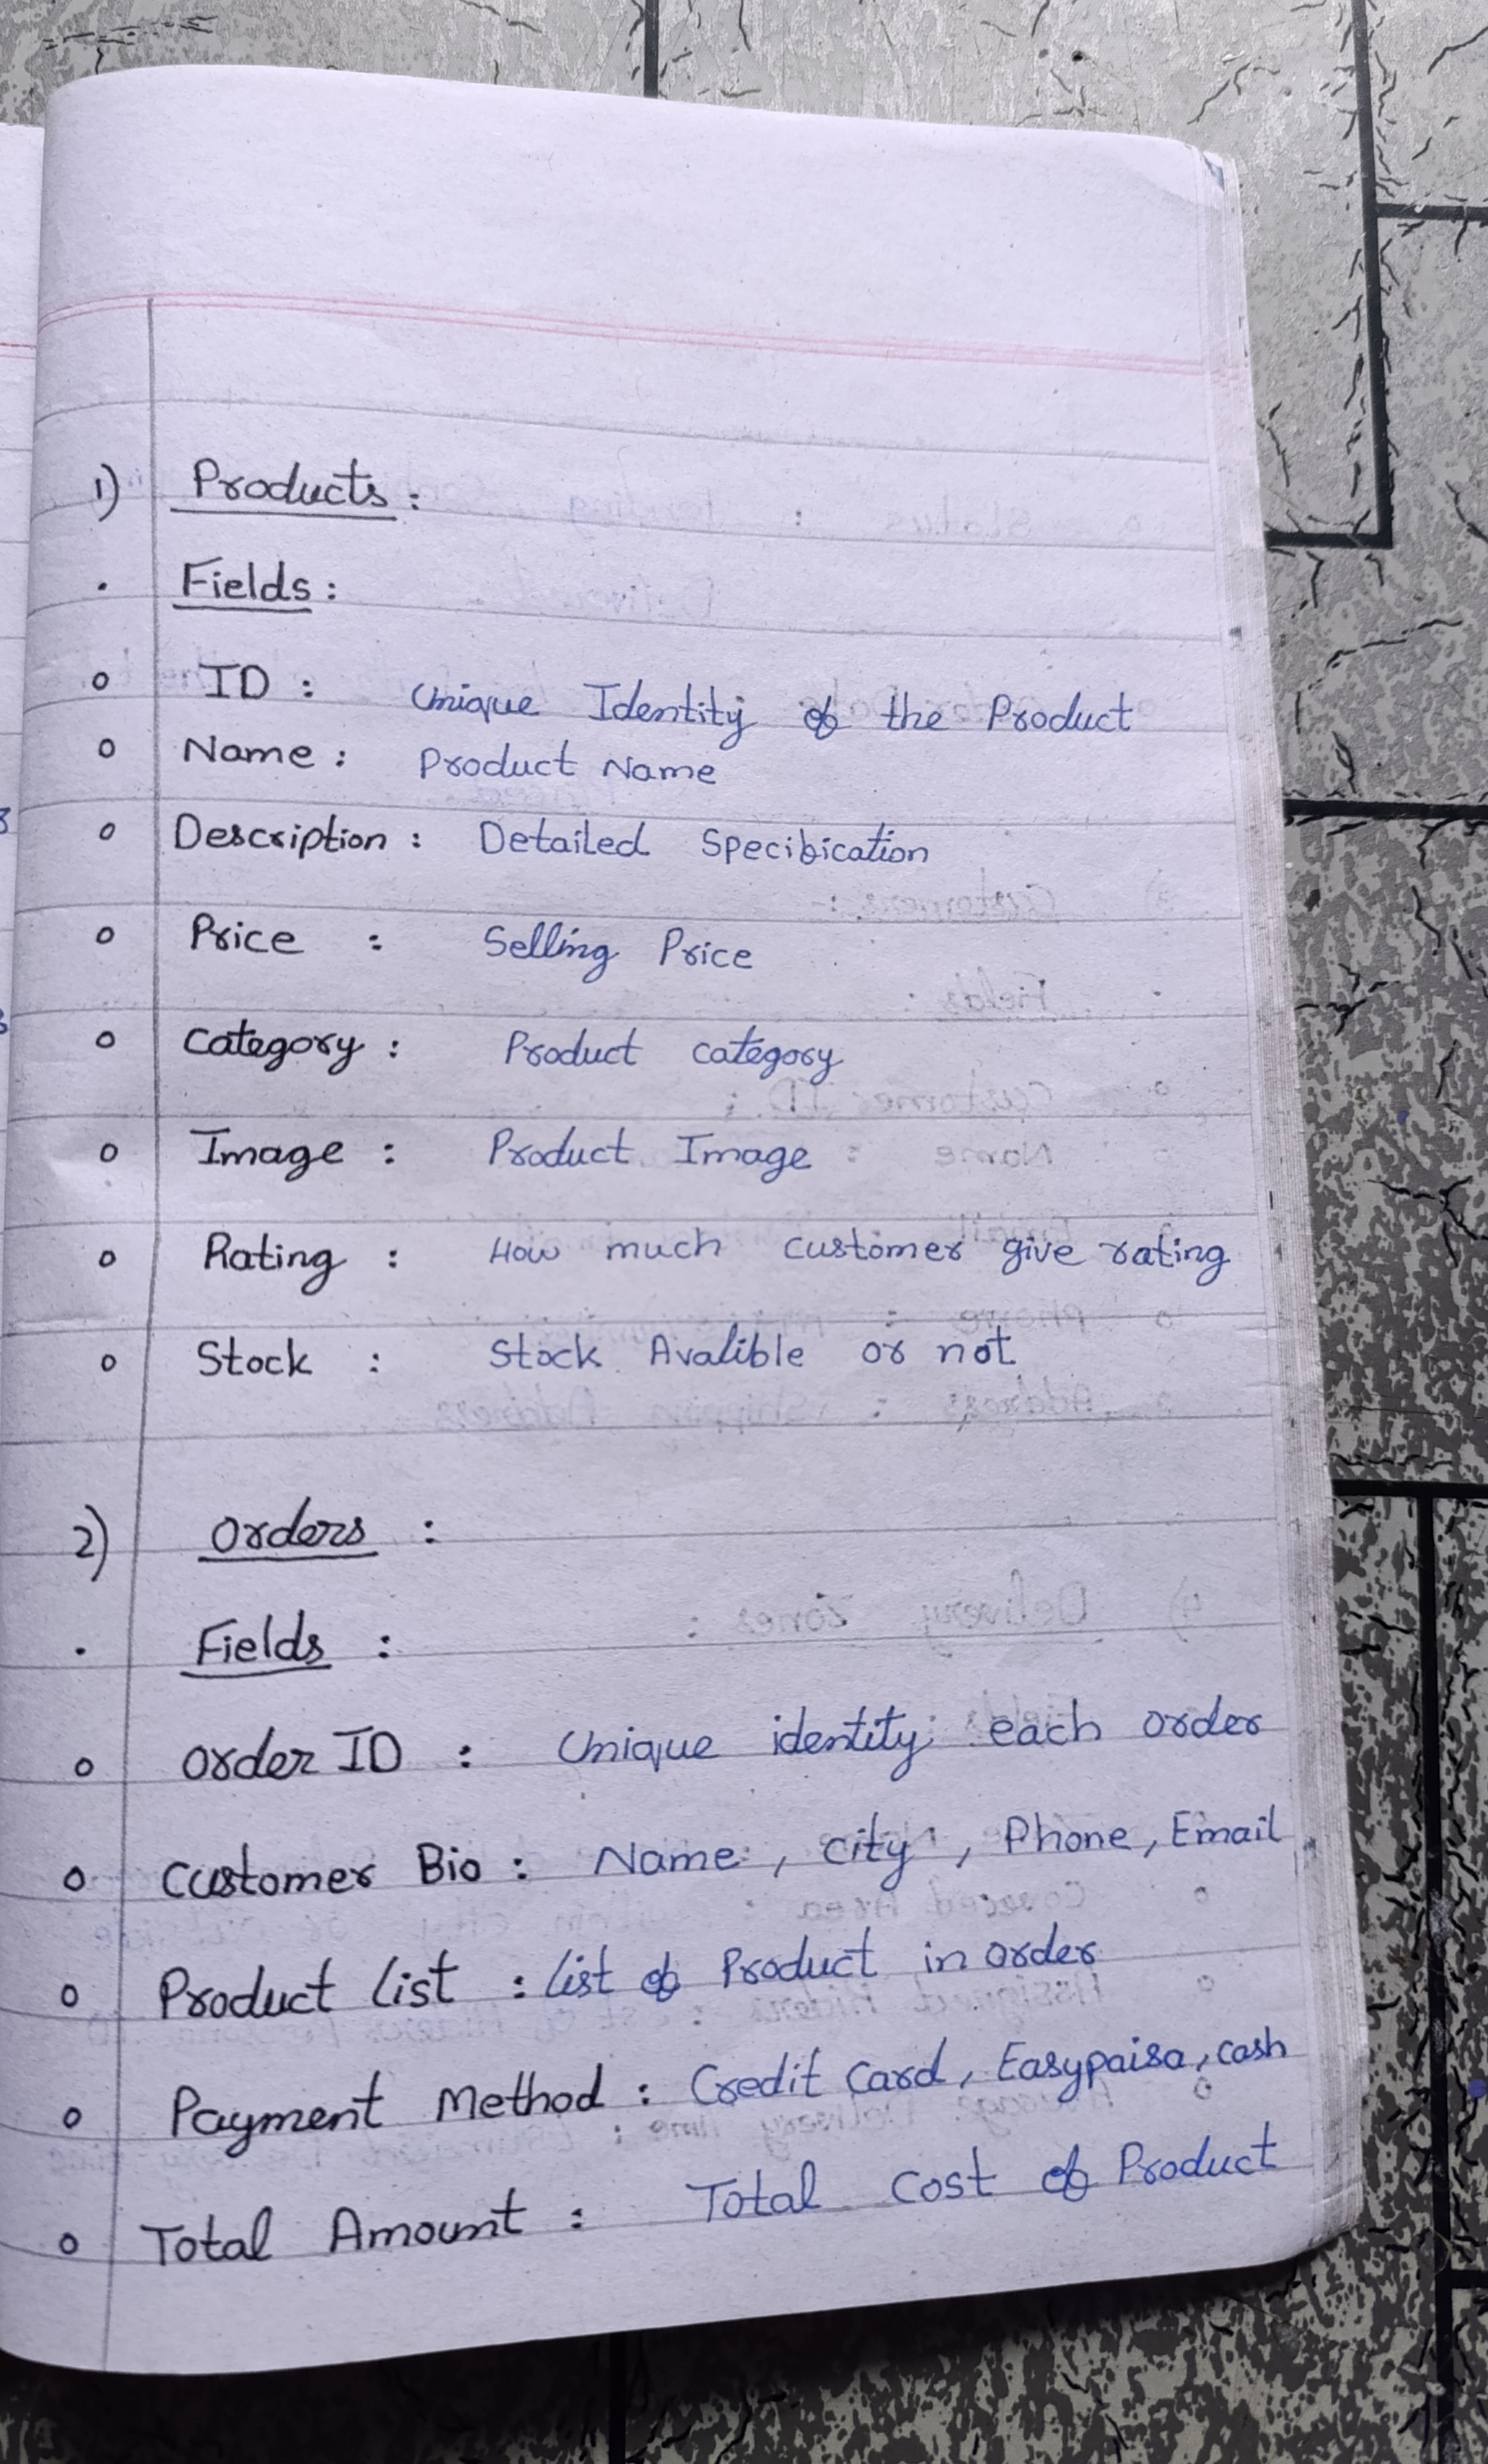 1) Products :
. Fields :
o ID : Unique Identity of the Product
o Name : Product Name
o Description : Detailed Specification
o Price : Selling Price
o Category : Product category
o Image : Product Image
o Rating : How much customer give rating
o Stock : Stock Avalible or not
2) Orders :
. Fields :
o Order ID : Unique identity each order
o Customer Bio : Name , City , Phone , Email
o Product List : List of Product in order
o Payment Method : Credit Card , Easypaisa , cash
o Total Amount : Total Cost of Product